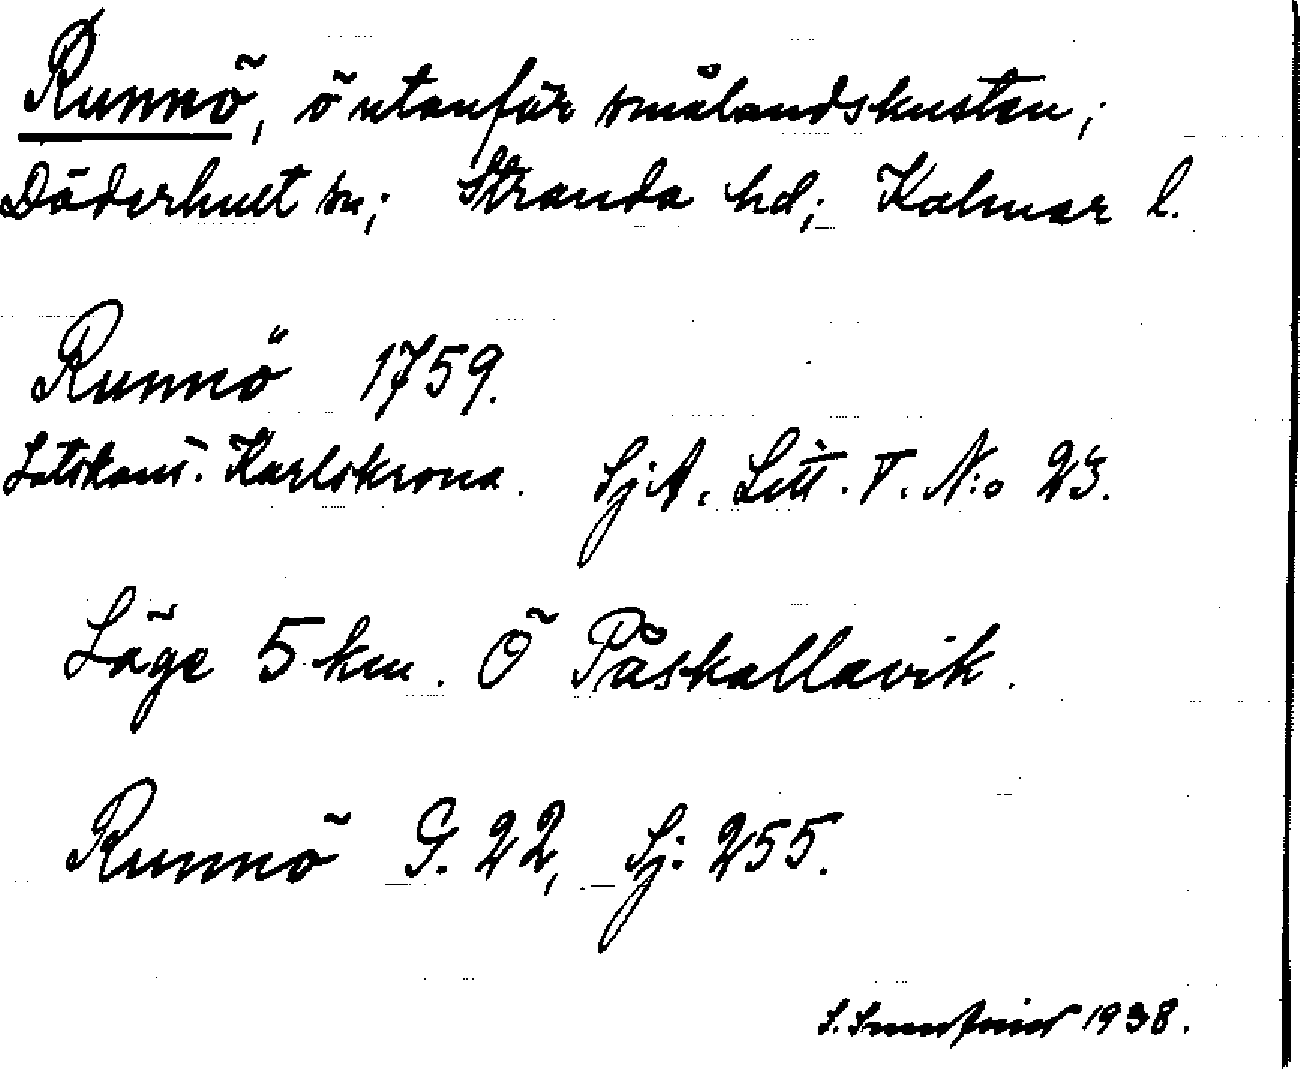 Runnö, ö utanför smålandskusten;
Döderhult sn; Stranda hd; Kalmar l.
Runnö 1759.
Lotskont. Karlskrona. SjA. Litt. V. N:o 23.
Läge 5 km. Ö Påskallavik.
Runnö G. 22, Sj: 255.
S. 1938.